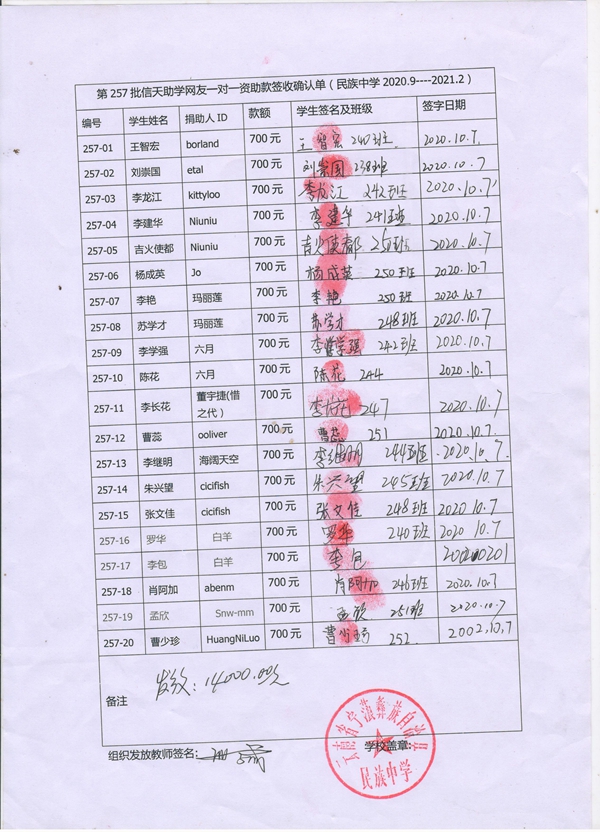 第 257 批信天助学网友一对一资助款签收确认单（民族中学 2020.9----2021.2）
编号 学生姓名 捐助人 ID 款额 学生签名及班级 签字日期
257-01 王智宏 borland 700 元 王智宏 240班. 2020.10.7.
257-02 刘崇国 etal 700 元 刘崇国 238班 2020.10.7
257-03 李龙江 kittyloo 700 元 李龙江 242班 2020.10.7
257-04 李建华 Niuniu 700 元 李建华 241班 2020.10.7
257-05 吉火使都 Niuniu 700 元 吉火使都 250班 2020.10.7
257-06 杨成英 Jo 700 元 杨成英 250班 2020.10.7
257-07 李艳 玛丽莲 700 元 李艳 250班 2020.10.7
257-08 苏学才 玛丽莲 700 元 苏学才 248班 2020.10.7
257-09 李学强 六月 700 元 李学强 242班 2020.10.7
257-10 陈花 六月 700 元 陈花 244 2020.10.7.
257-11 李长花 董宇捷(惜之代） 700 元 李长花 247 2020.10.7
257-12 曹蕊 ooliver 700 元 曹蕊 251 2020.10.7
257-13 李继明 海阔天空 700 元 李继明 244班 2020.10.7.
257-14 朱兴望 cicifish 700 元 朱兴望 245班 2020.10.7
257-15 张文佳 cicifish 700 元 张文佳 248班 2020.10.7
257-16 罗华 白羊 700 元 罗华 240班 2020 10.7
257-17 李包 白羊 700 元 李包
257-18 肖阿加 abenm 700 元 肖阿加 246班 2020.10.7
257-19 孟欣 Snw-mm 700 元 孟欣 251班 2020.10.7
257-20 曹少珍 HuangNiLuo 700 元 曹少珍 252. 2002.10.7
备注 发放:14000.00元
组织发放教师签名: 学校盖章:
云南省宁蒗彝族自治县
民族中学